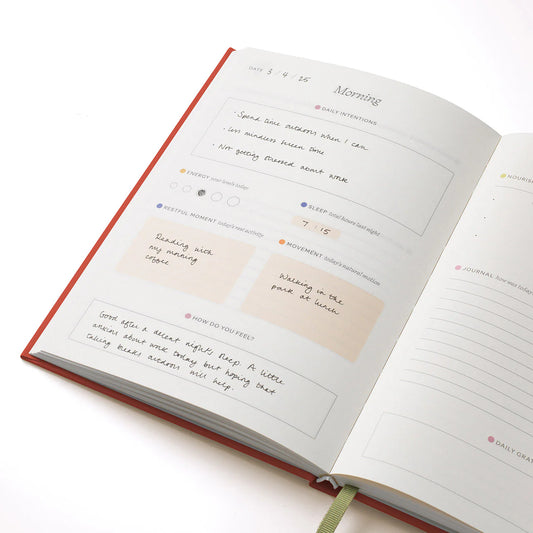 DATE 3 / 4 / 25
Morning
DAILY INTENTIONS
· Spend time outdoors when I can
· Less mindless screen time
· Not getting stressed about work
ENERGY your levels today
SLEEP total hours last night
7 : 15
RESTFUL MOMENT today's rest activity
Reading with
my morning
coffee
MOVEMENT today's natural motion
Walking in the
park at lunch
HOW DO YOU FEEL?
Good after a decent night's sleep. A little
anxious about work today but hoping that
taking breaks outdoors will help.
NOURIS
JOURNAL how was today
DAILY GRA